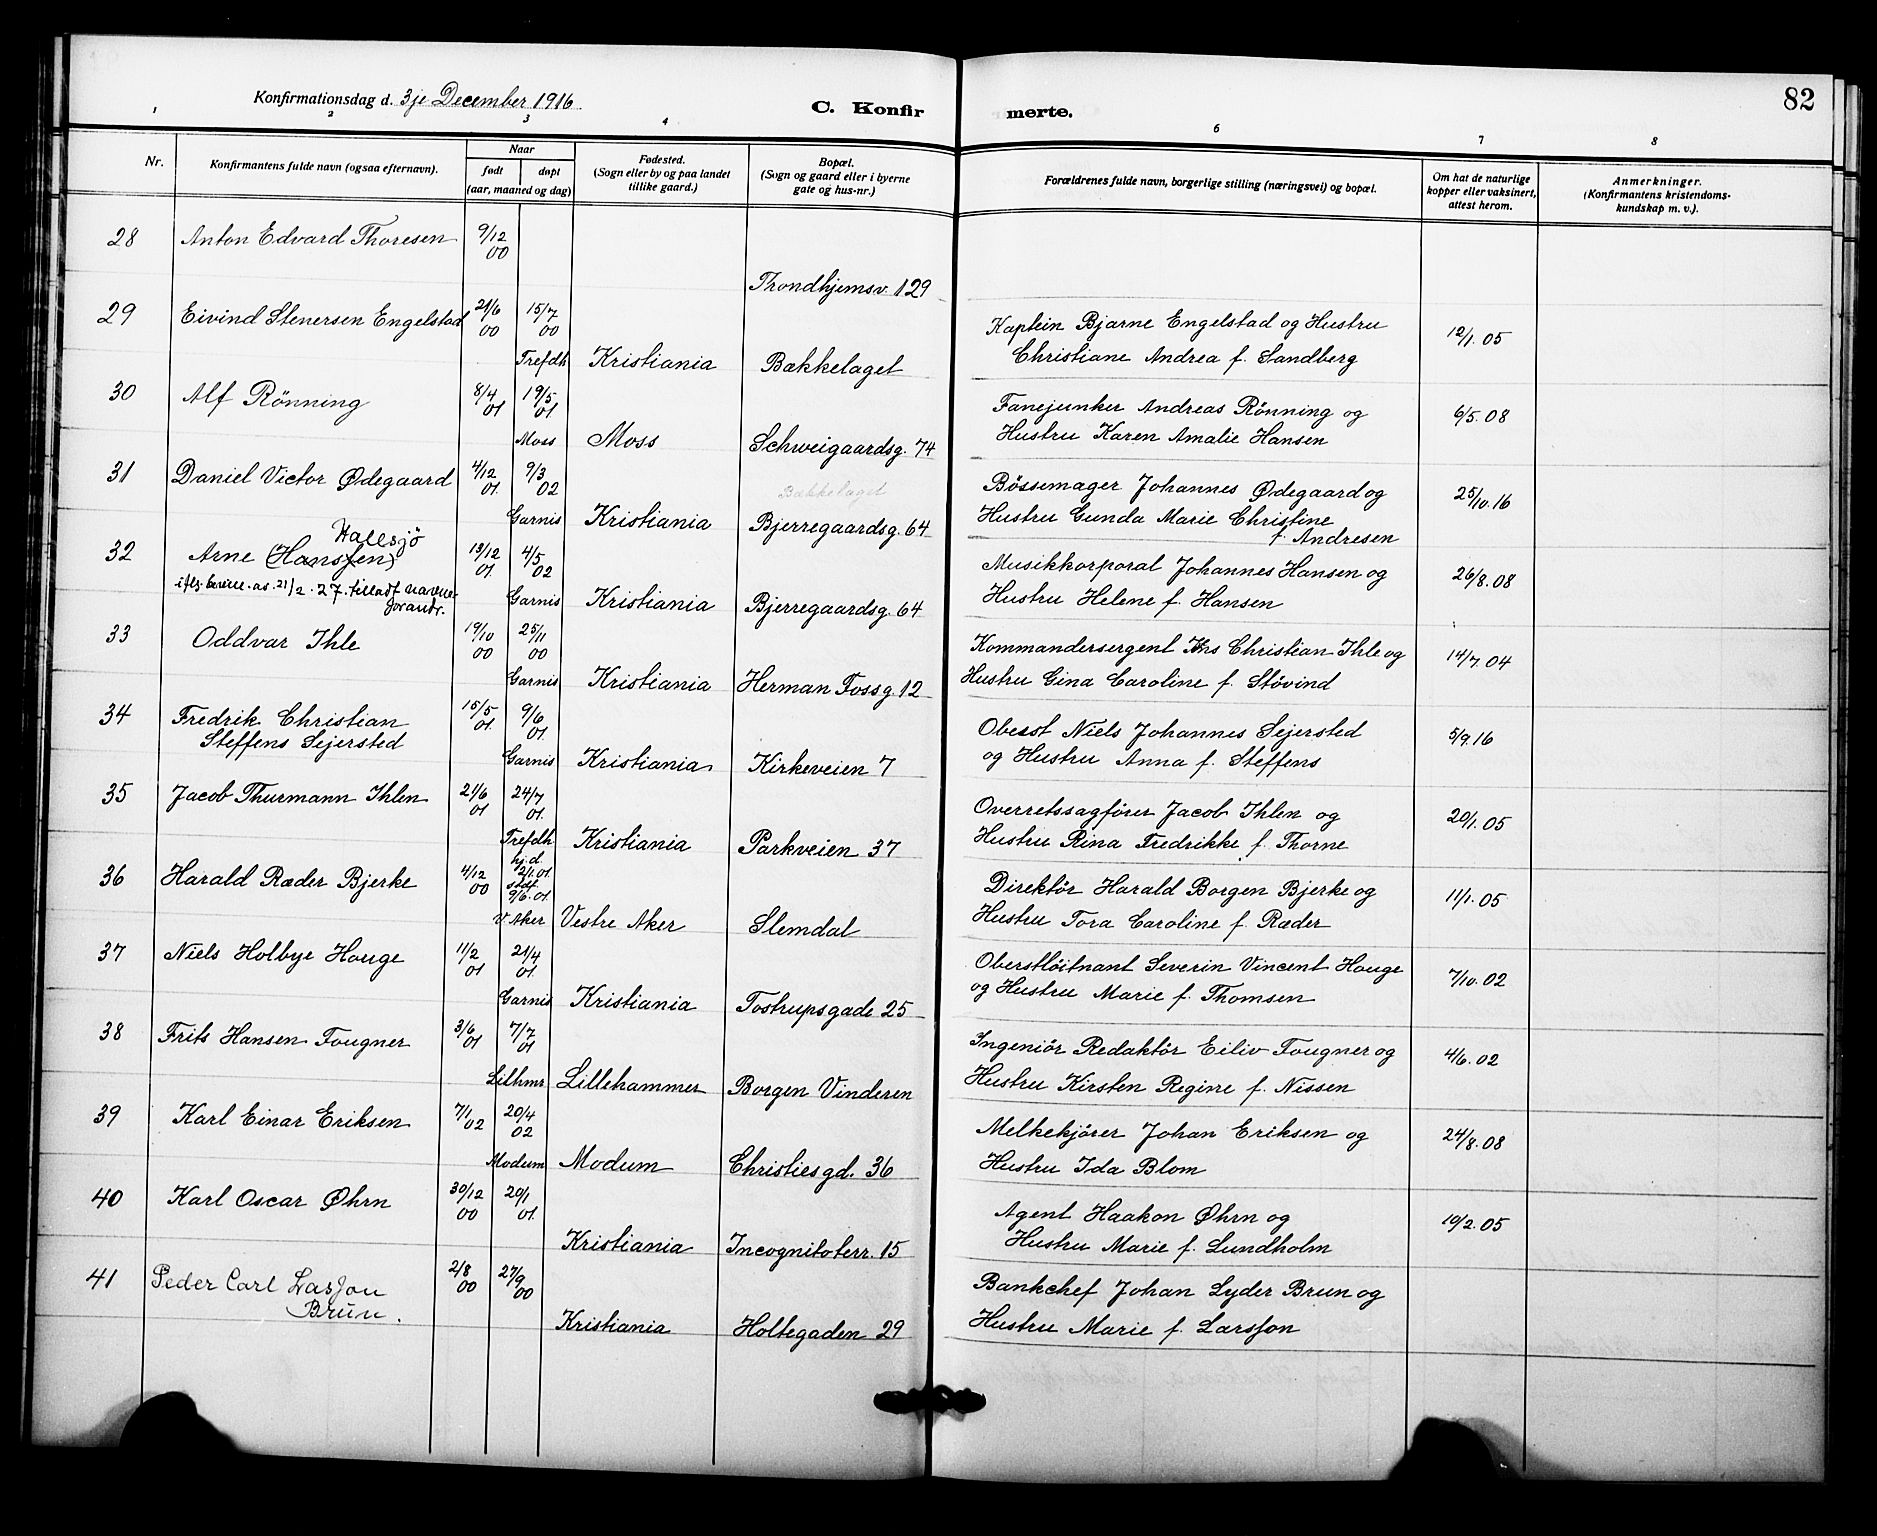 82
Konfirmationsdag d. 3je December 1916.
C. Konfirmerte.
1 2 3 4 6 7 8
Nr.
Konfirmantens fulde navn (ogsaa efternavn).
Naar
født døpt
(aar, maaned og dag)
Fødested.
(Sogn eller by og paa landet
tillike gaard.)
Bopæl.
(Sogn og gaard eller i byerne
gate og hus-nr.)
Forældrenes fulde navn, borgerlige stilling (næringsvei) og bopæl.
Om hat de naturlige
kopper eller vaksinert,
attest herom.
Anmerkninger.
(Konfirmantens kristendoms-
kundskap m. v.).
28 Anton Edvard Thoresen 9/12
00
Trondhjemsv. 129
29 Eivind Stenersen Engelstad 21/6 15/7 Kaptein Bjarne Engelstad og Hustru 12/1. 05
00 00
Trefdh Kristiania Bækkelaget Christiane Andrea f. Sandberg
30 Alf Rönning 8/4 19/5 Fanejunker Andreas Rönning og 6/5. 08
01 01
Moss Moss Schweigaardsg. 74 Hustru Karen Amalie Hansen
31 Daniel Victor Ødegaard 4/12 9/3 Bækkelaget Bössemager Johannes Ødegaard og 25/10. 16
01. 02
Garnis Kristiania Bjerregaardsg. 64 Hustru Gunda Marie Christine
f. Andresen
Hallsjö
32 Arne (Hanssen) 13/12 4/5 Musikkorporal Johannes Hansen og 26/8. 08
01. 02
iflg. bevill. av 21/2. 27. tilladt navne-
forandr. Garnis Kristiania Bjerregaardsg. 64 Hustru Helene f. Hansen
33 Oddvar Ihle 19/10 25/11 Kommandersergent Jhs Christian Ihle og 14/7. 04
00 00
Garnis Kristiania Herman Fossg. 12 Hustru Gina Caroline f. Stövind
34 Fredrik Christian 15/5 9/6 Oberst Niels Johannes Sejersted 5/9. 16
Steffens Sejersted 01. 01.
Garnis Kristiania Kirkeveien 7 og Hustru Anna f. Steffens
35 Jacob Thurmann Ihlen 21/6 24/7 Overretssagförer Jacob Ihlen og 20/1. 05
01 01.
Trefdh Kristiania Parkveien 37 Hustru Rina Fredrikke f. Thorne
36 Harald Ræder Bjerke 4/12 hj.d. 2/1. 01. Direktör Harald Borgen Bjerke og 11/1. 05
00 stdf. 9/6. 01.
V. Aker Vestre Aker Slemdal Hustru Tora Caroline f. Ræder
37 Niels Holbye Houge 11/2 21/4 Oberstlöitnant Severin Vincent Houge 7/10. 02
01 01.
Garnis Kristiania Tostrupsgade 25 og Hustru Marie f. Thomsen
38 Frits Hansen Fougner 3/6 7/7 Ingeniör Redaktör Eiliv Fougner og 4/6. 02
01 01
Lilhmr Lillehammer Borgen Vinderen Hustru Kirsten Regine f. Nissen
39 Karl Einar Eriksen 7/1 20/4 Melkekjörer Johan Eriksen og 24/8. 08
02 02
Modum Modum Christiesgd. 36 Hustru Ida Blom
40 Karl Oscar Øhrn 30/12 20/1 Agent Haakon Øhrn og 10/2. 05
00 01.
Kristiania Incognitoterr. 15 Hustru Marie f. Lundholm
41 Peder Carl Lasson 2/8 27/9 Bankchef Johan Lyder Brun og
Brun. 00 00
Kristiania Holtegaden 29 Hustru Marie f. Larsson